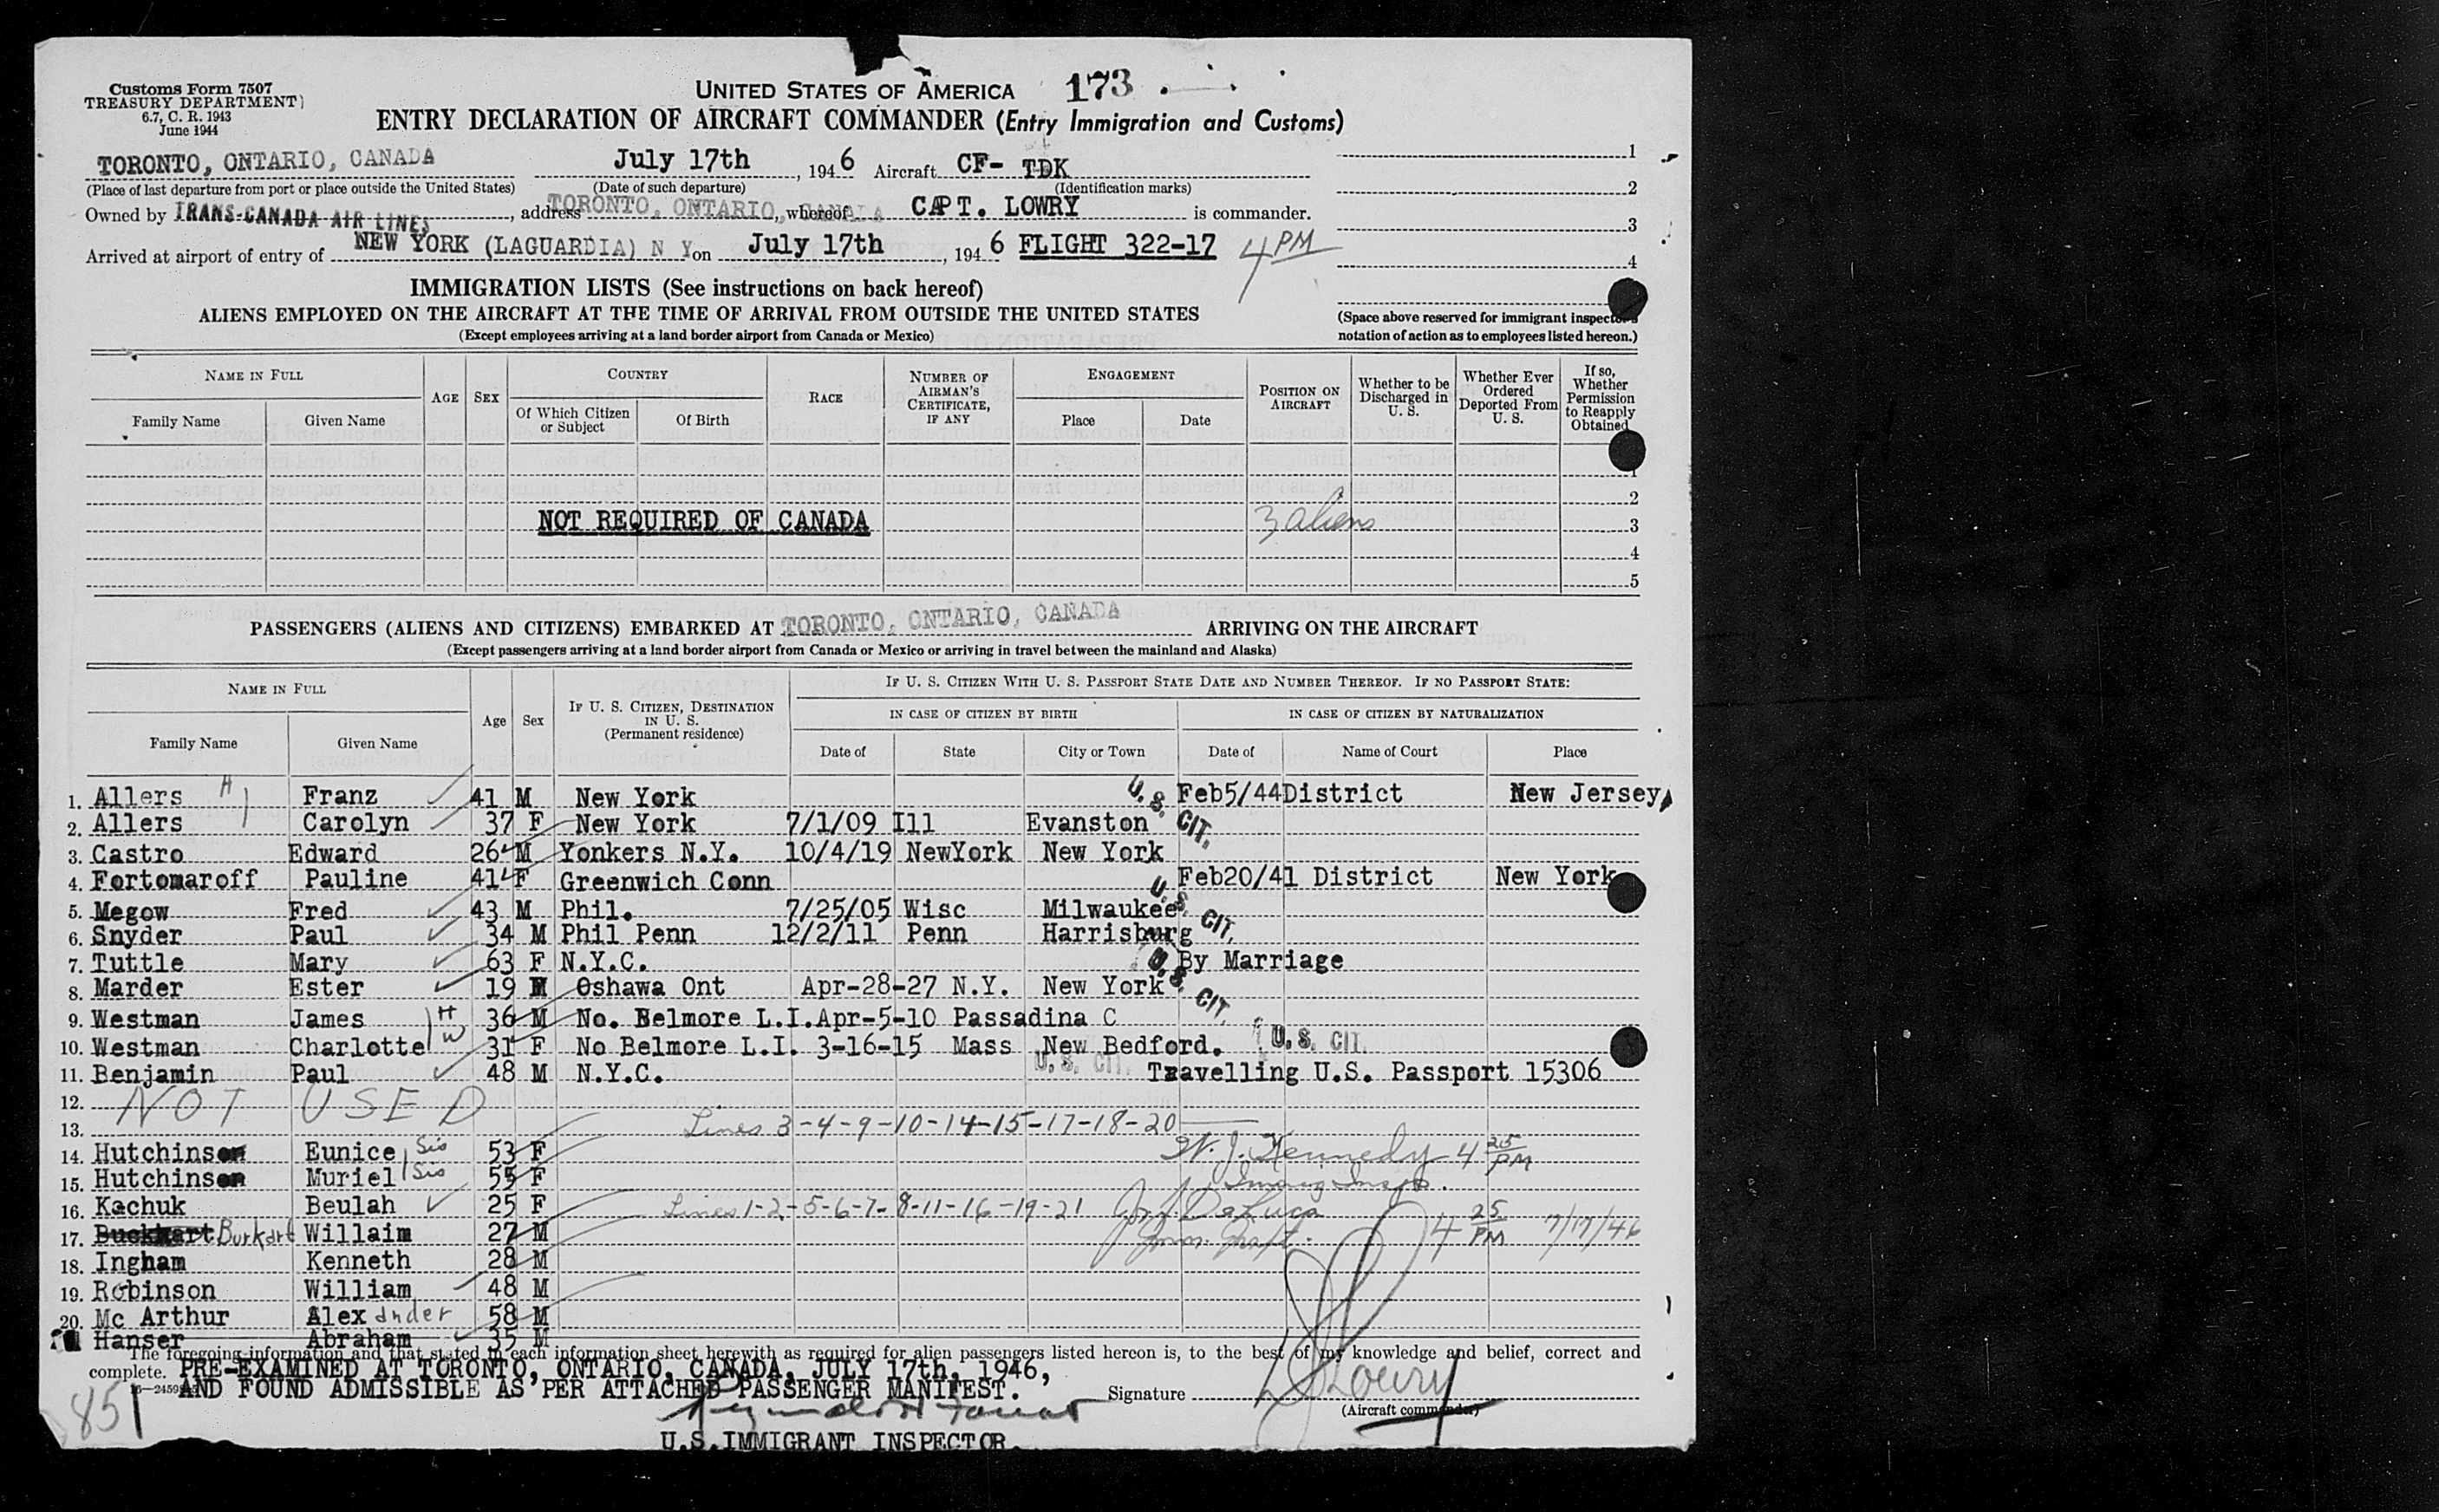 Customs Form 7507
TREASURY DEPARTMENT
6.7, C. R. 1943
June 1944
UNITED STATES OF AMERICA 173
ENTRY DECLARATION OF AIRCRAFT COMMANDER (Entry Immigration and Customs)
TORONTO, ONTARIO, CANADA July 17th, 1946 Aircraft CF- TDK 1
(Place of last departure from port or place outside the United States) (Date of such departure) (Identification marks) 2
Owned by TRANS-CANADA AIR LINES, address TORONTO, ONTARIO, CANADA, whereof CAPT. LOWRY is commander. 3
Arrived at airport of entry of NEW YORK (LAGUARDIA) N Y on July 17th, 1946 FLIGHT 322-17 4 PM 4
IMMIGRATION LISTS (See instructions on back hereof)
ALIENS EMPLOYED ON THE AIRCRAFT AT THE TIME OF ARRIVAL FROM OUTSIDE THE UNITED STATES
(Except employees arriving at a land border airport from Canada or Mexico)
(Space above reserved for immigrant inspector's notation of action as to employees listed hereon.)
NAME IN FULL AGE SEX COUNTRY RACE NUMBER OF AIRMAN'S CERTIFICATE, IF ANY ENGAGEMENT POSITION ON AIRCRAFT Whether to be Discharged in U. S. Whether Ever Ordered Deported From U. S. If so, Whether Permission to Reapply Obtained
Family Name Given Name Of Which Citizen or Subject Of Birth Place Date
1
2
NOT REQUIRED OF CANADA 3 aliens 3
4
5
PASSENGERS (ALIENS AND CITIZENS) EMBARKED AT TORONTO, ONTARIO, CANADA ARRIVING ON THE AIRCRAFT
(Except passengers arriving at a land border airport from Canada or Mexico or arriving in travel between the mainland and Alaska)
NAME IN FULL Age Sex IF U. S. CITIZEN, DESTINATION IN U. S. (Permanent residence) IF U. S. CITIZEN WITH U. S. PASSPORT STATE DATE AND NUMBER THEREOF. IF NO PASSPORT STATE:
IN CASE OF CITIZEN BY BIRTH IN CASE OF CITIZEN BY NATURALIZATION
Family Name Given Name Date of State City or Town Date of Name of Court Place
1. Allers H Franz 41 M New York U. S. CIT. Feb5/44 District New Jersey
2. Allers Carolyn 37 F New York 7/1/09 Ill Evanston
3. Castro Edward 26 M Yonkers N.Y. 10/4/19 NewYork New York
4. Fortomaroff Pauline 41 F Greenwich Conn Feb20/41 District New York
5. Megow Fred 43 M Phil. 7/25/05 Wisc Milwaukee U. S. CIT.
6. Snyder Paul 34 M Phil Penn 12/2/11 Penn Harrisburg
7. Tuttle Mary 63 F N.Y.C. By Marriage
8. Marder Ester 19 Oshawa Ont Apr-28-27 N.Y. New York U. S. CIT.
9. Westman James H 36 M No. Belmore L.I. Apr-5-10 Passadina C
10. Westman Charlotte W 31 F No Belmore L.I. 3-16-15 Mass New Bedford. U. S. CIT.
11. Benjamin Paul 48 M N.Y.C. U. S. CIT. Travelling U.S. Passport 15306
12. NOT USED
13. Lines 3-4-9-10-14-15-17-18-20
14. Hutchinson Eunice Sis 53 F W. J. Kennedy 4 25 PM
15. Hutchinson Muriel Sis 55 F Immig Insp.
16. Kachuk Beulah 25 F Lines 1-2-5-6-7-8-11-16-19-21 DeLuca
17. Burkart Willaim 27 M Imm. Inspt. 4 25 PM 7/17/46
18. Ingham Kenneth 28 M
19. Robinson William 48 M
20. Mc Arthur Alexander 58 M
Hanser Abraham 35 M
The foregoing information and that stated in each information sheet herewith as required for alien passengers listed hereon is, to the best of my knowledge and belief, correct and
complete. PRE-EXAMINED AT TORONTO, ONTARIO, CANADA, JULY 17th, 1946,
AND FOUND ADMISSIBLE AS PER ATTACHED PASSENGER MANIFEST.
Signature Lowry
(Aircraft commander)
851
U.S. IMMIGRANT INSPECTOR.